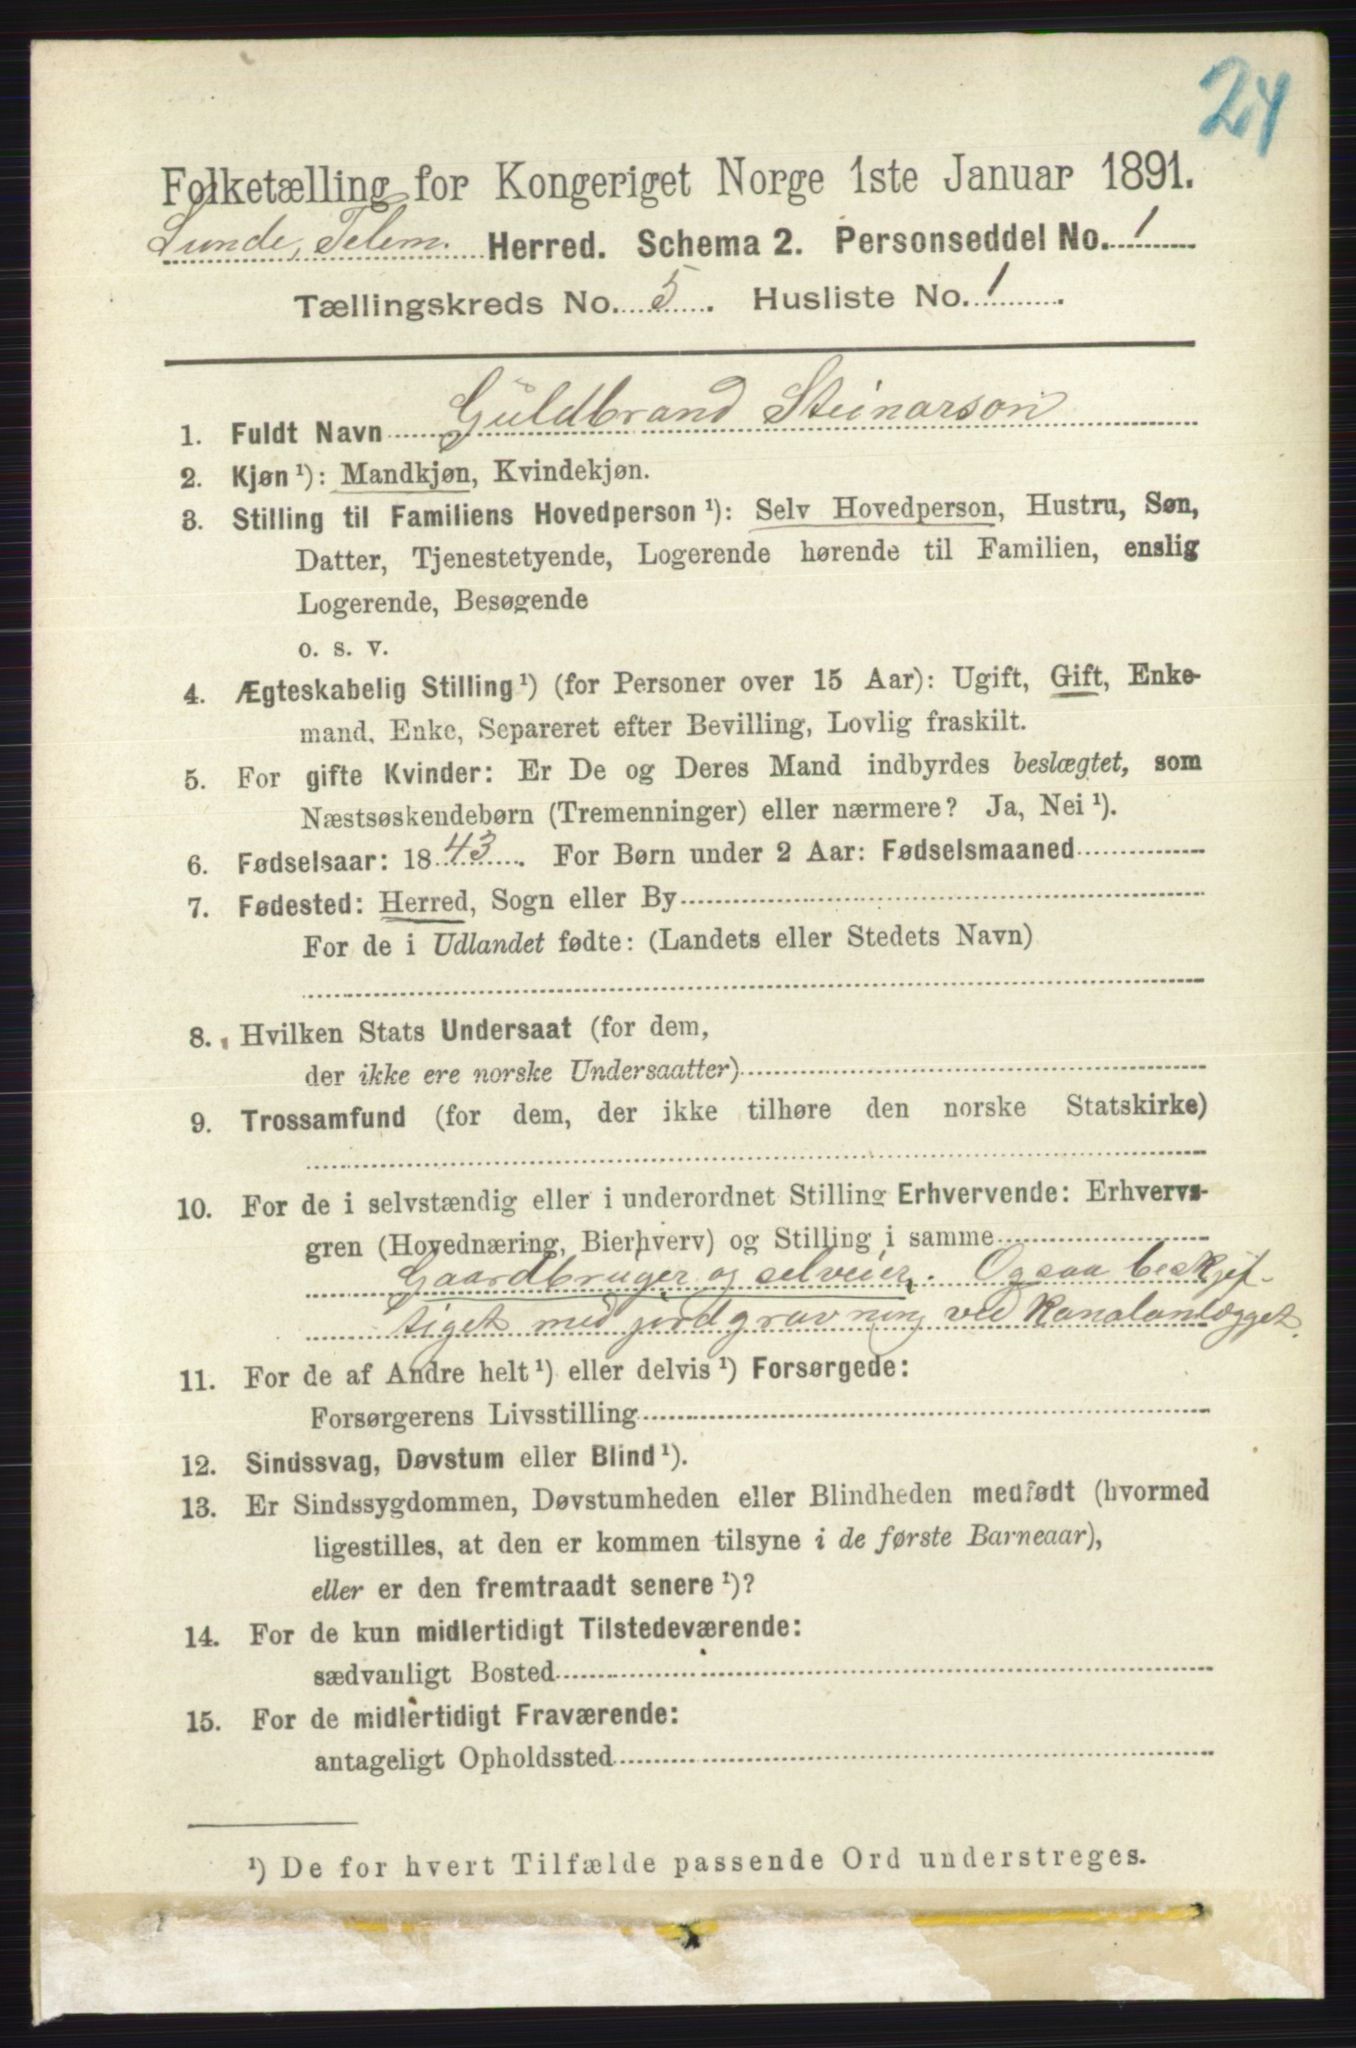 24
Folketælling for Kongeriget Norge 1ste Januar 1891.
Lunde, Telem. Herred. Schema 2. Personseddel No. 1
Tællingskreds No. 5. Husliste No. 1.
1. Fuldt Navn Guldbrand Steinarson
2. Kjøn ¹): Mandkjøn, Kvindekjøn.
3. Stilling til Familiens Hovedperson ¹): Selv Hovedperson, Hustru, Søn,
Datter, Tjenestetyende, Logerende hørende til Familien, enslig
Logerende, Besøgende
o. s. v.
4. Ægteskabelig Stilling ¹) (for Personer over 15 Aar): Ugift, Gift, Enke-
mand, Enke, Separeret efter Bevilling, Lovlig fraskilt.
5. For gifte Kvinder: Er De og Deres Mand indbyrdes beslægtet, som
Næstsøskendebørn (Tremenninger) eller nærmere? Ja, Nei ¹).
6. Fødselsaar: 1843. For Børn under 2 Aar: Fødselsmaaned
7. Fødested: Herred, Sogn eller By
For de i Udlandet fødte: (Landets eller Stedets Navn)
8. Hvilken Stats Undersaat (for dem,
der ikke ere norske Undersaatter)
9. Trossamfund (for dem, der ikke tilhøre den norske Statskirke)
10. For de i selvstændig eller i underordnet Stilling Erhvervende: Erhvervs-
gren (Hovednæring, Bierhverv) og Stilling i samme
Gaardbruger og selveier. Ogsaa beskjef-
tiget med jordgravning ved Kanalanlægget.
11. For de af Andre helt ¹) eller delvis ¹) Forsørgede:
Forsørgerens Livsstilling
12. Sindssvag, Døvstum eller Blind ¹).
13. Er Sindssygdommen, Døvstumheden eller Blindheden medfødt (hvormed
ligestilles, at den er kommen tilsyne i de første Barneaar),
eller er den fremtraadt senere ¹)?
14. For de kun midlertidigt Tilstedeværende:
sædvanligt Bosted
15. For de midlertidigt Fraværende:
antageligt Opholdssted
¹) De for hvert Tilfælde passende Ord understreges.